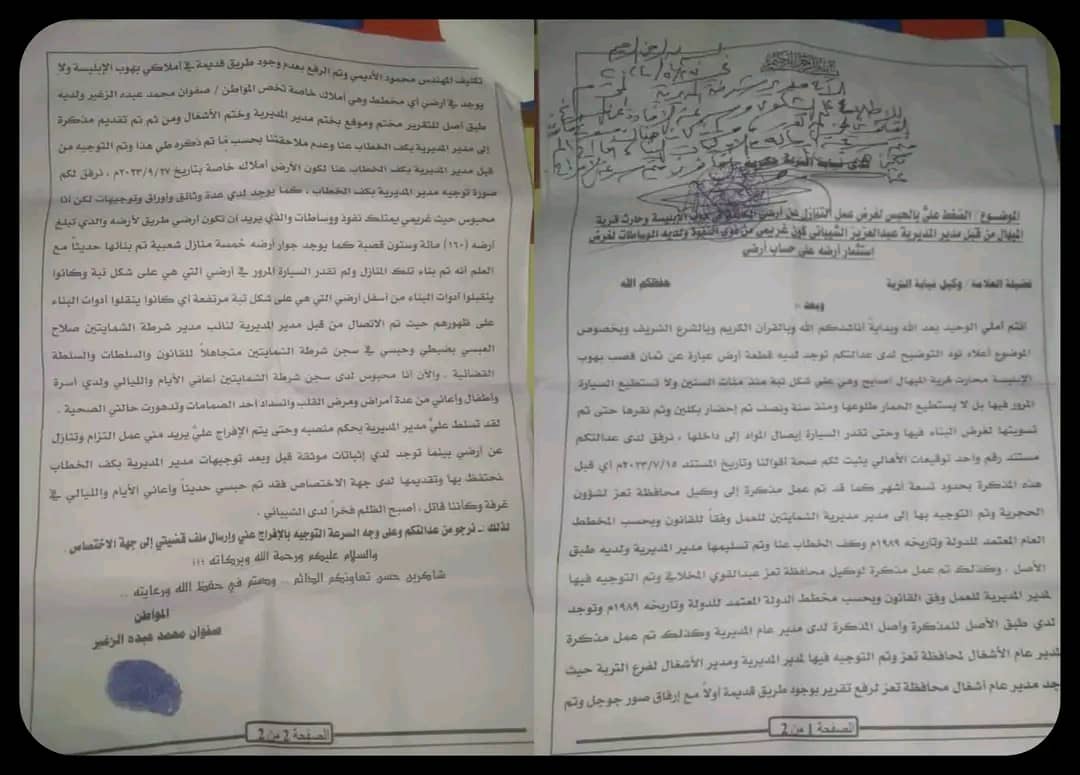 لدى نيابة التربة
الموضوع / الضغط عليَّ بالحبس لغرض عمل التنازل عن أرضي الكائنة في هوب الإبليسة وحارث قرية
الميهال من قبل مدير المديرية عبدالعزيز الشيباني كون غريمي من ذوي النفوذ ولديه الوساطات لغرض
استثمار أرضه على حساب أرضي
فضيلة العلامة / وكيل نيابة التربة حفظكم الله
وبعد
أنتم أملي الوحيد بعد الله وبداية أناشدكم الله وبالقرآن الكريم وبالشرع الشريف وبخصوص
الموضوع أعلاه نود التوضيح لدى عدالتكم توجد لديه قطعة أرض عبارة عن ثمان قصب بهوب
الإبليسة محارث قرية الميهال اصابح وهي على شكل تبة منذ مئات السنين ولا تستطيع السيارة
المرور فيها بل لا يستطيع الحمار طلوعها ومنذ سنة ونصف تم إحضار بكلين وتم نقرها حتى تم
تسويتها لغرض البناء فيها وحتى تقدر السيارة إيصال المواد إلى داخلها ، نرفق لدى عدالتكم
مستند رقم واحد توقيعات الأهالي يثبت لكم صحة أقوالنا وتاريخ المستند ٢٠٢٣/٧/١٥م أي قبل
هذه المذكرة بحدود تسعة أشهر كما قد تم عمل مذكرة إلى وكيل محافظة تعز لشؤون
الحجرية وتم التوجيه بها إلى مدير مديرية الشمايتين للعمل وفقاً للقانون وبحسب المخطط
العام المعتمد للدولة وتاريخه ١٩٨٩م وكف الخطاب عنا وتم تسليمها مدير المديرية ولديه طبق
الأصل . وكذلك تم عمل مذكرة لوكيل محافظة تعز عبدالقوي المخلافي وتم التوجيه فيها
لمدير المديرية للعمل وفق القانون وبحسب مخطط الدولة المعتمد للدولة وتاريخه ١٩٨٩م وتوجد
لدي طبق الأصل للمذكرة وأصل المذكرة لدى مدير عام المديرية وكذلك تم عمل مذكرة
لمدير عام الأشغال لمحافظة تعز وتم التوجيه فيها لمدير المديرية ومدير الأشغال لفرع التربة حيث
مدير عام أشغال محافظة تعز لرفع تقرير بوجود طريق قديمة أولاً مع إرفاق صور جوجل وتم
الصفحة 1 من 2
تكليف المهندس محمود الأديمي وتم الرفع بعدم وجود طريق قديمة في أملاكي بهوب الإبليسة ولا
يوجد في أرضي أي مخطط وهي أملاك خاصة تخص المواطن / صفوان محمد عبده الزغير ولديه
طبق أصل للتقرير مختم وموقع بختم مدير المديرية وختم الأشغال ومن ثم تم تقديم مذكرة
إلى مدير المديرية بكف الخطاب عنا وعدم ملاحقتنا بحسب ما تم ذكره طي هذا وتم التوجيه من
قبل مدير المديرية بكف الخطاب عنا لكون الأرض أملاك خاصة بتاريخ ٢٠٢٣/٩/٢٧م ، نرفق لكم
صورة توجيه مدير المديرية بكف الخطاب ، كما يوجد لدي عدة وثائق وأوراق وتوجيهات لكن أنا
محبوس حيث غريمي يمتلك نفوذ ووساطات والذي يريد أن تكون أرضي طريق لأرضه والذي تبلغ
أرضه (١٦٠) مائة وستون قصبة كما يوجد جوار أرضه خمسة منازل شعبية تم بنائها حديثاً مع
العلم أنه تم بناء تلك المنازل ولم تقدر السيارة المرور في أرضي التي هي على شكل تبة وكانوا
ينقلوا أدوات البناء من أسفل أرضي التي هي على شكل تبة مرتفعة أي كانوا ينقلوا أدوات البناء
على ظهورهم حيث تم الاتصال من قبل مدير المديرية لنائب مدير شرطة الشمايتين صلاح
العبسي بضبطي وحبسي في سجن شرطة الشمايتين متجاهلاً للقانون والسلطات والسلطة
القضائية . والآن أنا محبوس لدى سجن شرطة الشمايتين أعاني الأيام والليالي ولدي أسرة
وأطفال وأعاني من عدة أمراض ومرض القلب وانسداد أحد الصمامات وتدهورت حالتي الصحية .
لقد تسلط عليَّ مدير المديرية بحكم منصبه وحتى يتم الإفراج عليَّ يريد مني عمل التزام وتنازل
عن أرضي بينما توجد لدي إثباتات موثقة قبل وبعد توجيهات مدير المديرية بكف الخطاب
نحتفظ بها وتقديمها لدى جهة الاختصاص فقد تم حبسي حديثاً وأعاني الأيام والليالي في
غرفة وكأننا قاتل ، أصبح الظلم فخراً لدى الشيباني .
لذلك :ـ نرجو من عدالتكم وعلى وجه السرعة التوجيه بالإفراج عني وإرسال ملف قضيتي إلى جهة الاختصاص .
والسلام عليكم ورحمة الله وبركاته ،،،
شاكرين حسن تعاونكم الدائم .. ودمتم في حفظ الله ورعايته ..
المواطن
صفوان محمد عبده الزغير
الصفحة 2 من 2